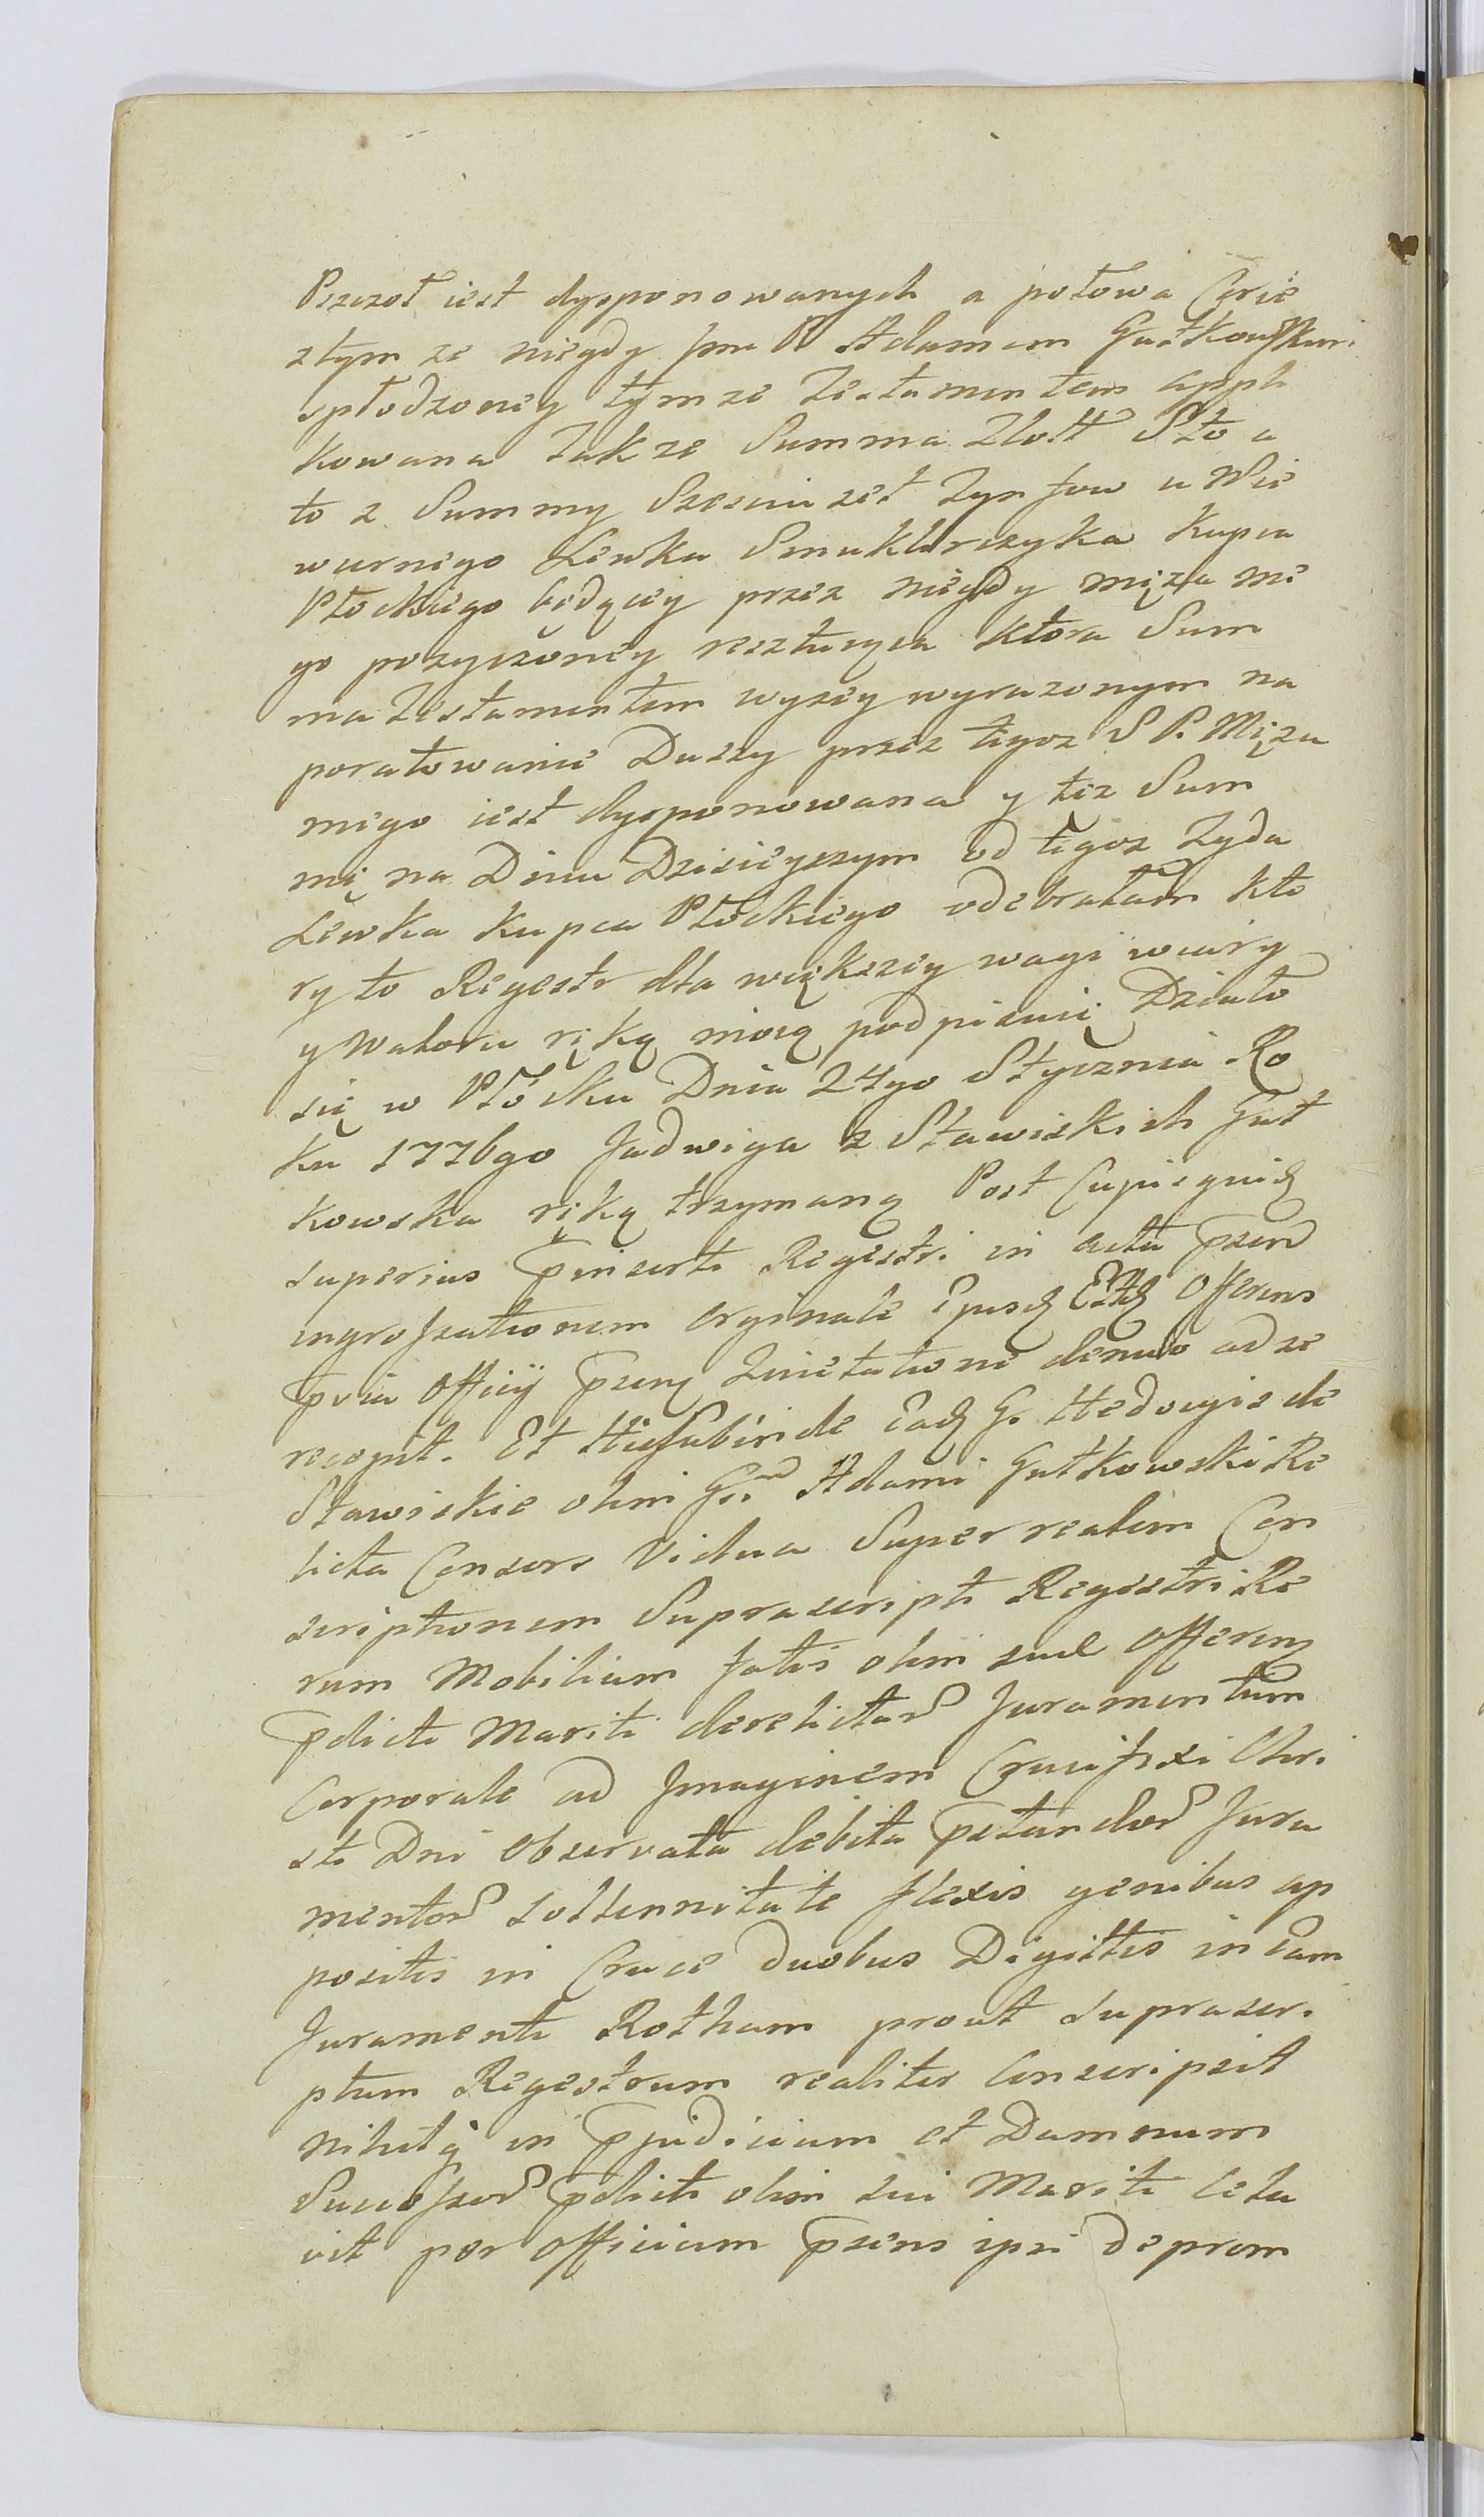 Pszczoł iest dysponowanych a połowa Corce
ztym ze niegdy Jmc P Adamem Gutkowskim
spłodzoney tymze Testamentem appli
kowana Takze Summa Złott Sto a
to z Summy Szesciuset Tynfow u Nie
wurnego Lewka Smuklerczyka Kupca
Płockiego będącey przez niegdy męza me
go pozyczoney resztuiąca ktora Sum
ma Testamentem wyzey wyrazonym na
poratowanie Duszy przez tegoz S P. Męza
mego iest dysponowana y tęz Sum
mę na Dniu Dzisieyszym od tegoz Zyda
Lewka Kupca Płockiego odebrałam kto
ry to Regestr dla większey wagi wiary
y waloru ręką moią podpisuię Działo
się w Płocku Dnia 24go Stycznia Ro
ku 1776go Jadwiga z Sławiskich Gut
kowska ręką trzymaną Post Cujus quid
superius pinserti Regestri in acta psen
ingrossationem orginale Ejusd Idem Offerens
pvia Officii psens Quietatione denuo ad se
recepit. Et Hic Subinde Ead G. Hedvigis de
Sławiskie olim Gsi Adami Gutkowski Re
licta Consors Vidua Super realem Con
scriptionem Suprascripti Regestri Re
rum Mobilium fatis olim sui Offerens
pdicti Mariti derelictar Juramentum
Corporale ad Jmaginem Crucifixi Chri
sti Dni observata debita pstandor Jura
mentor sollennitate flexis genibus ap
positis in Cruce duobus Digittis in eam
Juramenti Rotham prout suprascri
ptum Regestrum realiter Conscripsit
nihilq in pjudicium et Damnum
Successor pdicti olim sui Mariti Cela
vit per officium psens ipsi deprom